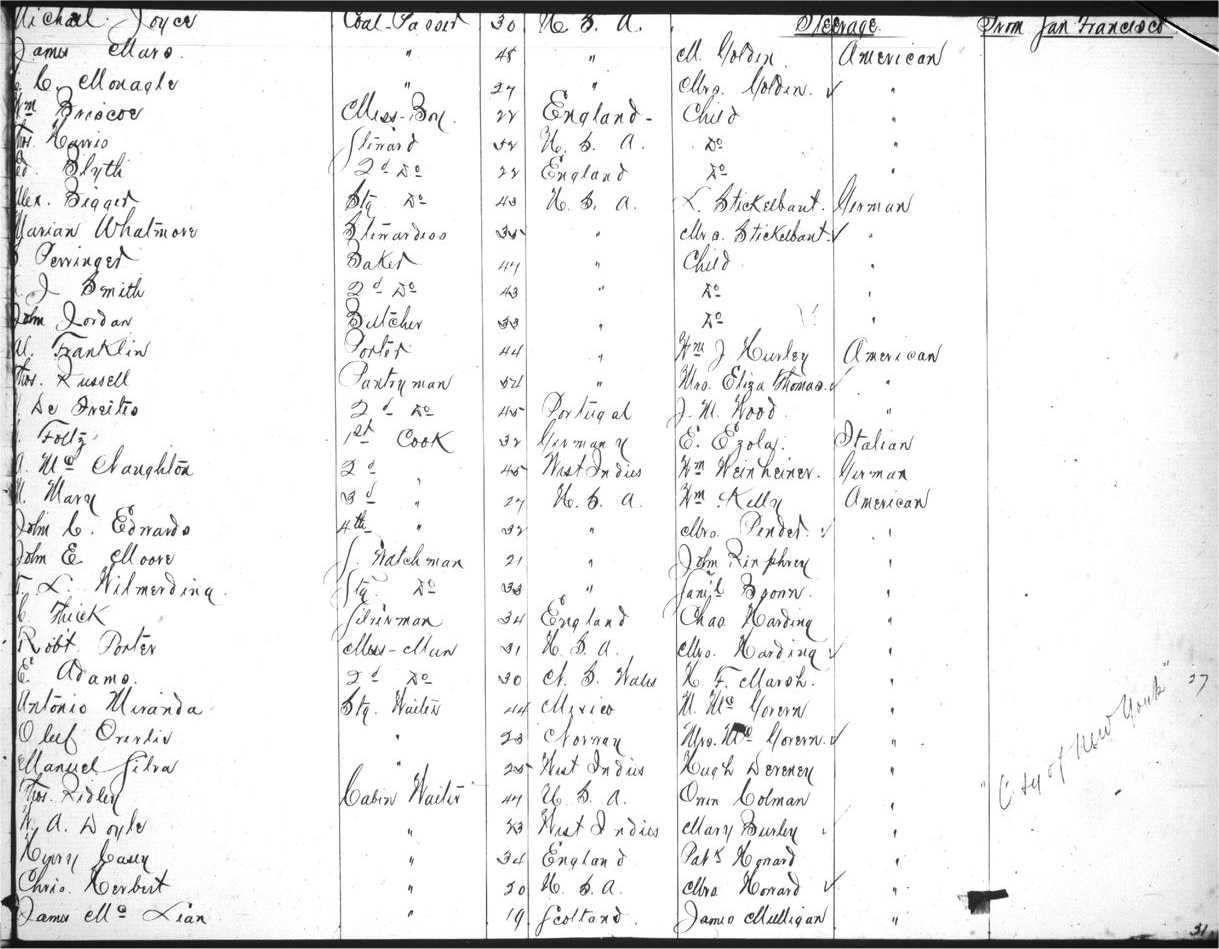 Michael Joyce Coal-Passer 30 U. S. A. Steerage. From San Francisco
James Mars. " 45 " M. Golden. American
C. Monagle " 27 " Mrs. Golden. ✓ "
Wm Briscoe Mess-Boy. 22 England - Child "
Thos. Harris Steward 32 U. S. A. Do "
Ed. Blyth 2d Do 22 England Do "
Alex. Bigger Stg Do 43 U. S. A. L. Stickelbaut. German
Marian Whatmore Stewardess 35 " Mrs. Stickelbaut. ✓ "
Perringer Baker 47 " Child "
J Smith 2d Do 43 " Do "
John Jordan Butcher 33 " Do "
Franklin Porter 44 " Wm J Hurley American
Thos. Russell Pantryman 54 " Mrs. Eliza Thomas. ✓ "
De Freitis 2d Do 45 Portugal J. M. Wood. "
Foltz 1st Cook 32 Germany E. Ezola. Italian
A. McNaughton 2d " 45 West Indies Wm Weinheiner. German
Mary 3d " 27 U. S. A. Wm Kelly American
John C. Edwards 4th " 32 " Mrs. Pender. ✓ "
John E. Moore S. Watchman 21 " John Rinphrey "
L. Wilmerding. Stg. Do 33 " Saml Brown. "
C. Thick Silverman 34 England Chas Harding "
Robt. Porter Mess-Man 31 U. S. A. Mrs. Harding ✓ "
E. Adams. 2d Do 30 N. S. Wales H. F. Marsh. "
Antonio Miranda Stg. Waiter 44 Mexico M. McGovern "
Oleef Overlie " 23 Norway Mrs. McGovern. ✓ "
Manuel Silva " 25 West Indies Hugh Dereney "
Thos. Ridley Cabin Waiter 47 U. S. A. Orrin Colman "
A. Doyle " 23 West Indies Mary Burley ✓ "
Henry Casey " 34 England Patk Honard "
Chris. Herbert " 20 U. S. A. Mrs Honard ✓ "
James McLian " 19 Scotland. James Mulligan "
"City of New York" 37
31